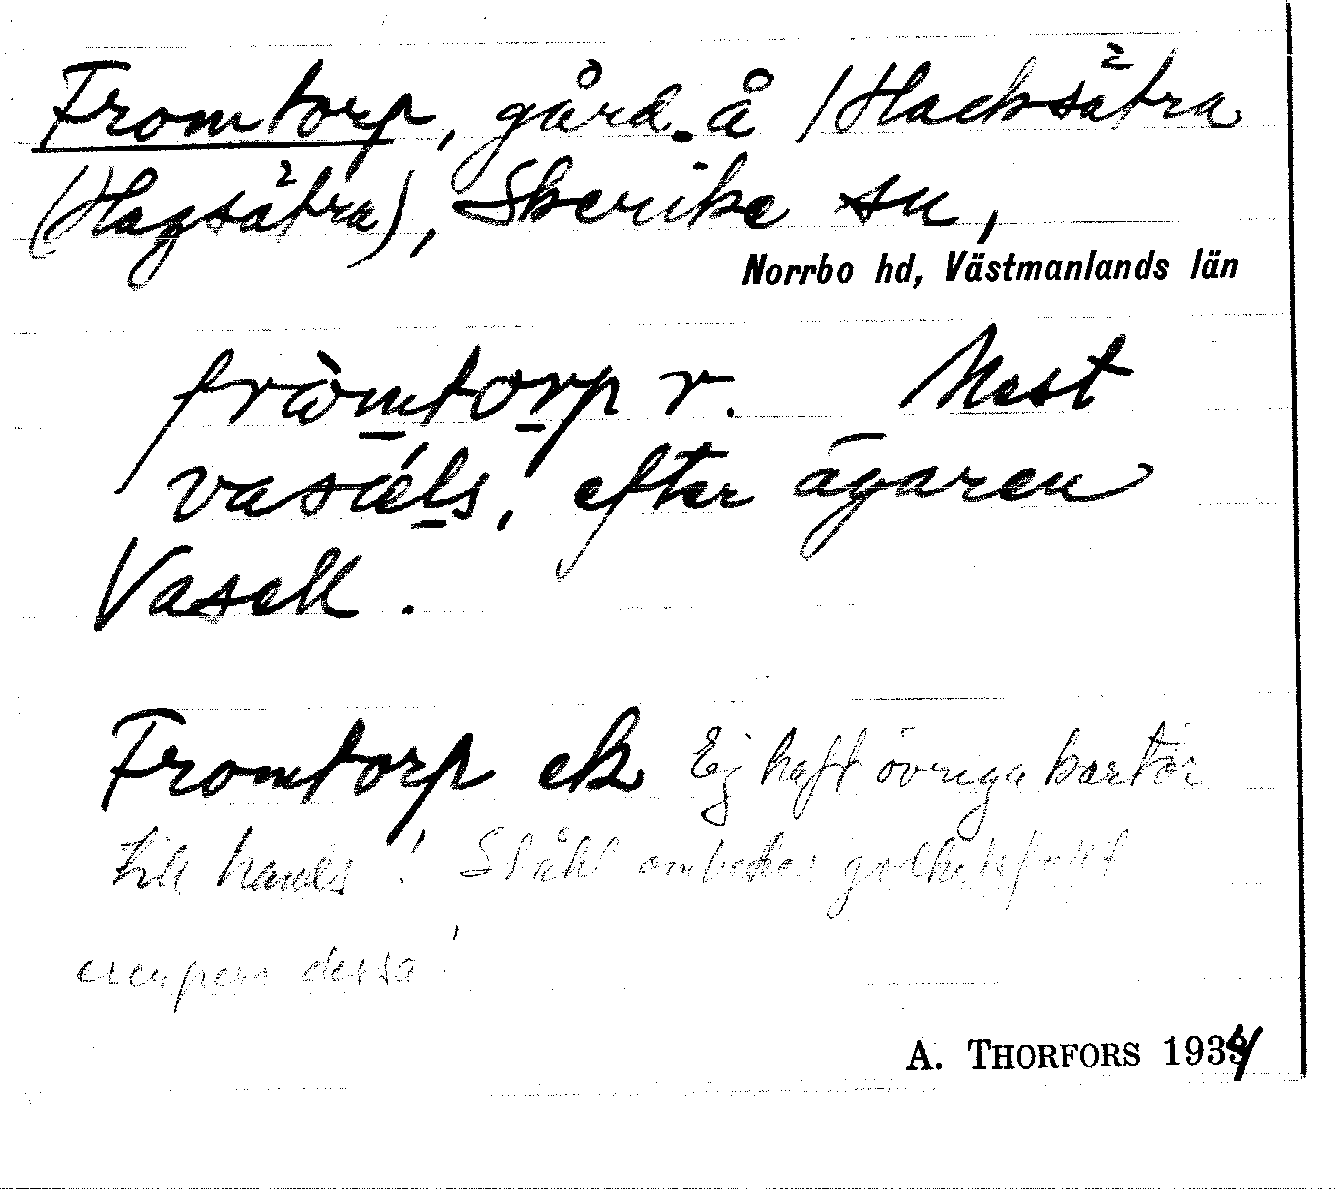 Fromtorp, gård å /Hacksätra
(Hagsätra), Skerike sn,
Norrbo hd, Västmanlands län
fròmtorp r. Mest
vasǽls, efter ägaren
Vasell.
Fromtorp ek Ej haft övriga kartor
till hands! Ståhl ombedes godhetsfullt
dessa!
A. THORFORS 1934